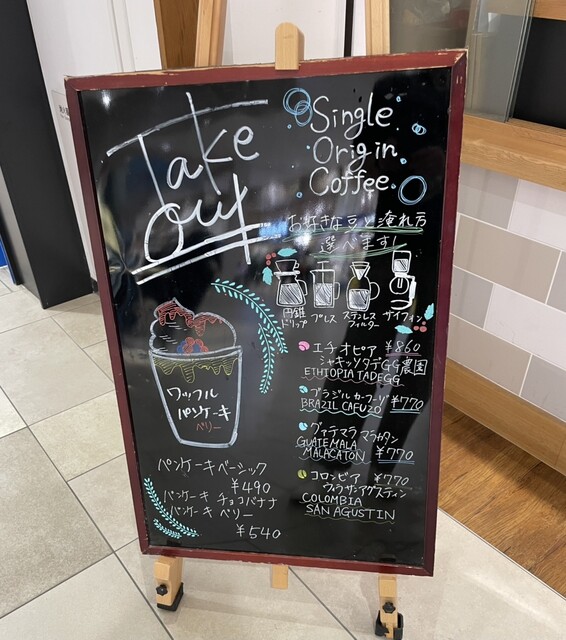 Take
Out
Single
Origin
Coffee
お好きな豆と淹れ方
選べます!
円錐
ドリップ
プレス
ステンレス
フィルター
サイフォン
エチオピア ¥860
シャキッソタデGG農園
ETHIOPIA TADEGG
ブラジル カフーゾ ¥770
BRAZIL CAFUZO
グァテマラ マラカタン
GUATEMALA
MALACATON ¥770
コロンビア ¥770
ウィラサンアグスティン
COLOMBIA
SAN AGUSTIN
ワッフル
パンケーキ
ベリー
パンケーキベーシック
¥490
パンケーキ チョコバナナ
パンケーキ ベリー
¥540